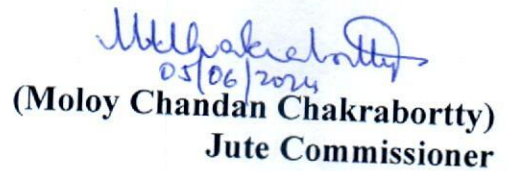 MChakrabortty
05/06/2024
(Moloy Chandan Chakrabortty)
Jute Commissioner